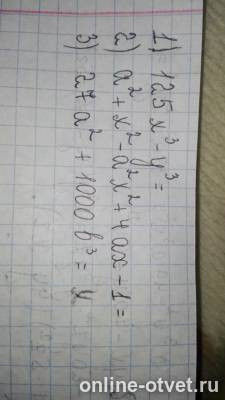 1) 125x³-y³=
2) a²+x²-a²x²+4ax-1=
3) 27a²+1000b³=
online-otvet.ru